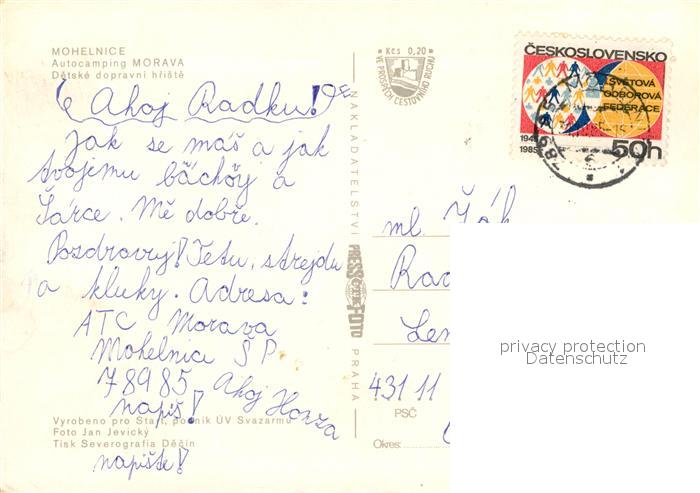 MOHELNICE
Autocamping MORAVA
Dětské dopravní hřiště
Ahoj Radku!
Jak se máš a jak
tvojemu báchoŕy a
Šárce. Mě dobře.
Pozdravuj! Tetu, strejdu
a kluky. Adresa:
ATC Morava
Mohelnice ŠP
78985 Ahoj Honza
napiš!
Vyrobeno pro Start, podnik ÚV Svazarmu
Foto Jan Jevický
Tisk Severografia Děčín
napište!
NAKLADATELSTVÍ
PRESSFOTO
PRAHA
Kčs 0,20
VE PROSPĚCH CESTOVNÍHO RUCHU
ČESKOSLOVENSKO
SVĚTOVÁ
ODBOROVÁ
FEDERACE
1945
1985
50h
789 85
ml. Žák
Rad
Len
431 11
PSČ
Okres:
privacy protection
Datenschutz